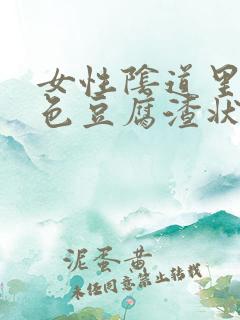 女性陰道里
色豆腐渣狀
泥蛋黄
未经同意禁止转载